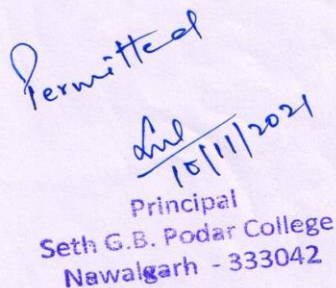 Permitted
10/11/2021
Principal
Seth G.B. Podar College
Nawalgarh - 333042